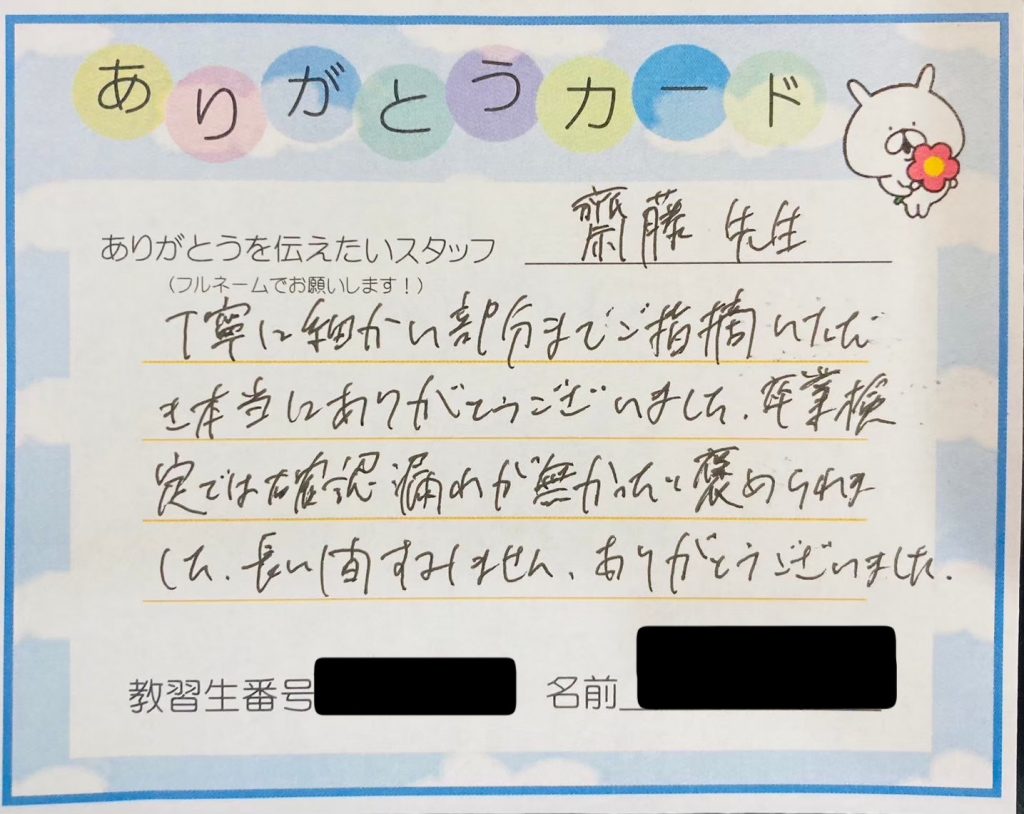 ありがとうカード
ありがとうを伝えたいスタッフ 齋藤 先生
(フルネームでお願いします!)
丁寧に細かい部分までご指摘いただ
き本当にありがとうございました。卒業検
定では確認漏れが無かったと褒められま
した。長い間すみません、ありがとうございました。
教習生番号 名前